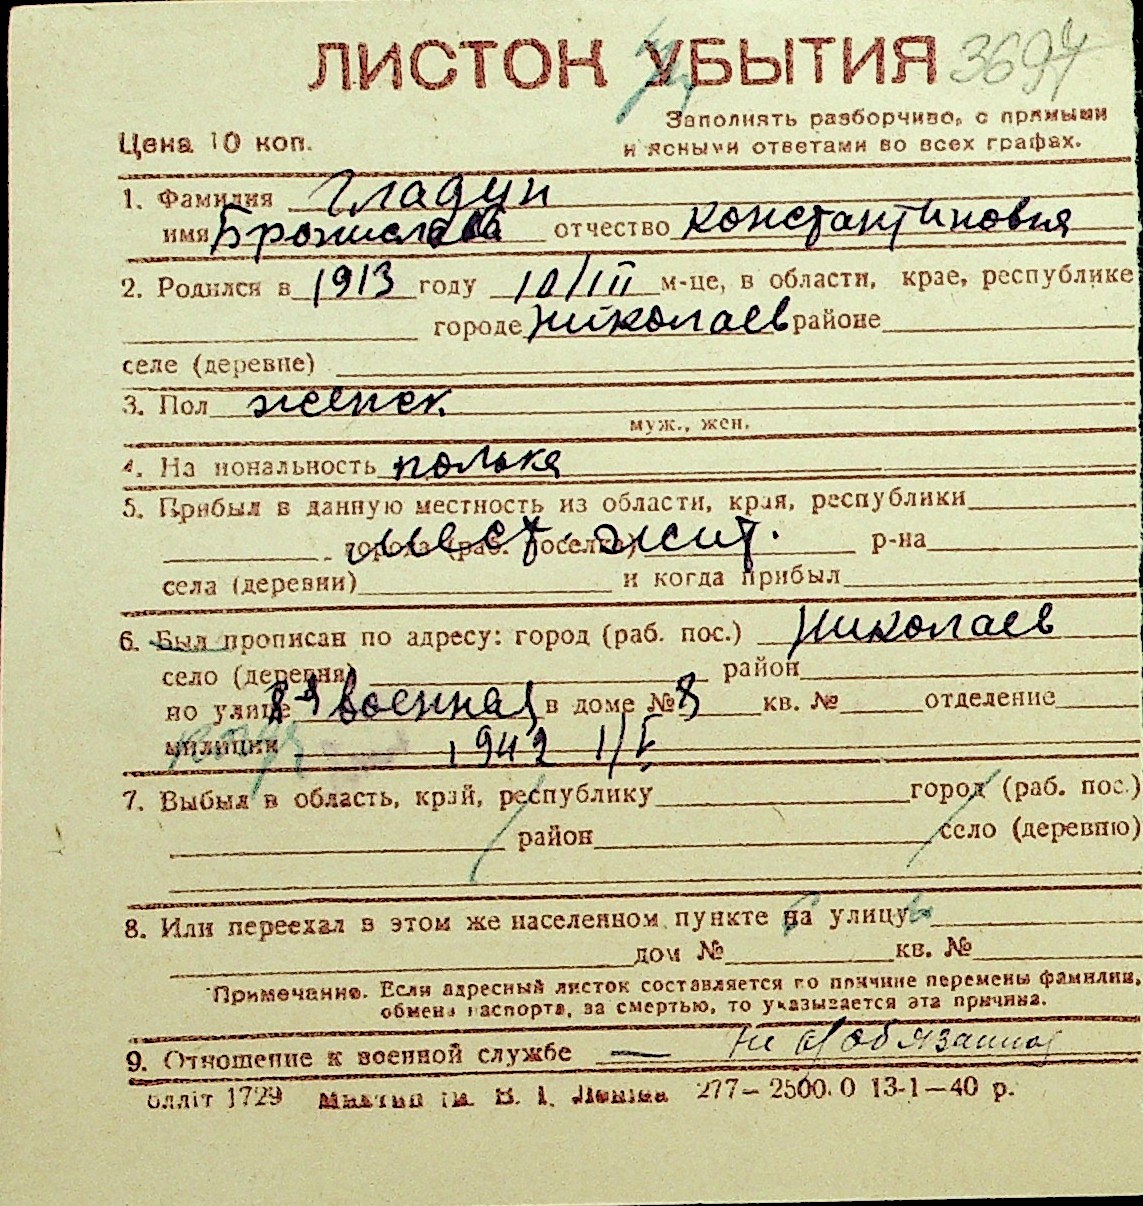 ЛИСТОК УБЫТИЯ 3697
Заполнять разборчиво, с прямыми
Цена 10 коп. и ясными ответами во всех графах.
1. Фамилия Гладун
имя Бронислава отчество Константиновна
2. Родился в 1913 году 10/III м-це, в области, крае, республике
городе Николаев районе
селе (деревне)
3. Пол женск.
муж., жен.
4. Национальность полька
5. Прибыл в данную местность из области, края, республики
города (раб. поселка) мест. жит. р-на
села (деревни) и когда прибыл
6. Был прописан по адресу: город (раб. пос.) Николаев
село (деревня) район
по улице Военная в доме № 8 кв. № отделение
милиции 1942 1/V
7. Выбыл в область, край, республику город (раб. пос.)
район село (деревню)
8. Или переехал в этом же населенном пункте на улицу
дом № кв. №
Примечание. Если адресный листок составляется по причине перемены фамилии,
обмена паспорта, за смертью, то указывается эта причина.
9. Отношение к военной службе — не в/обязанная
олліт 1729 В. І. Леніна 277—2500.0 13-1—40 р.